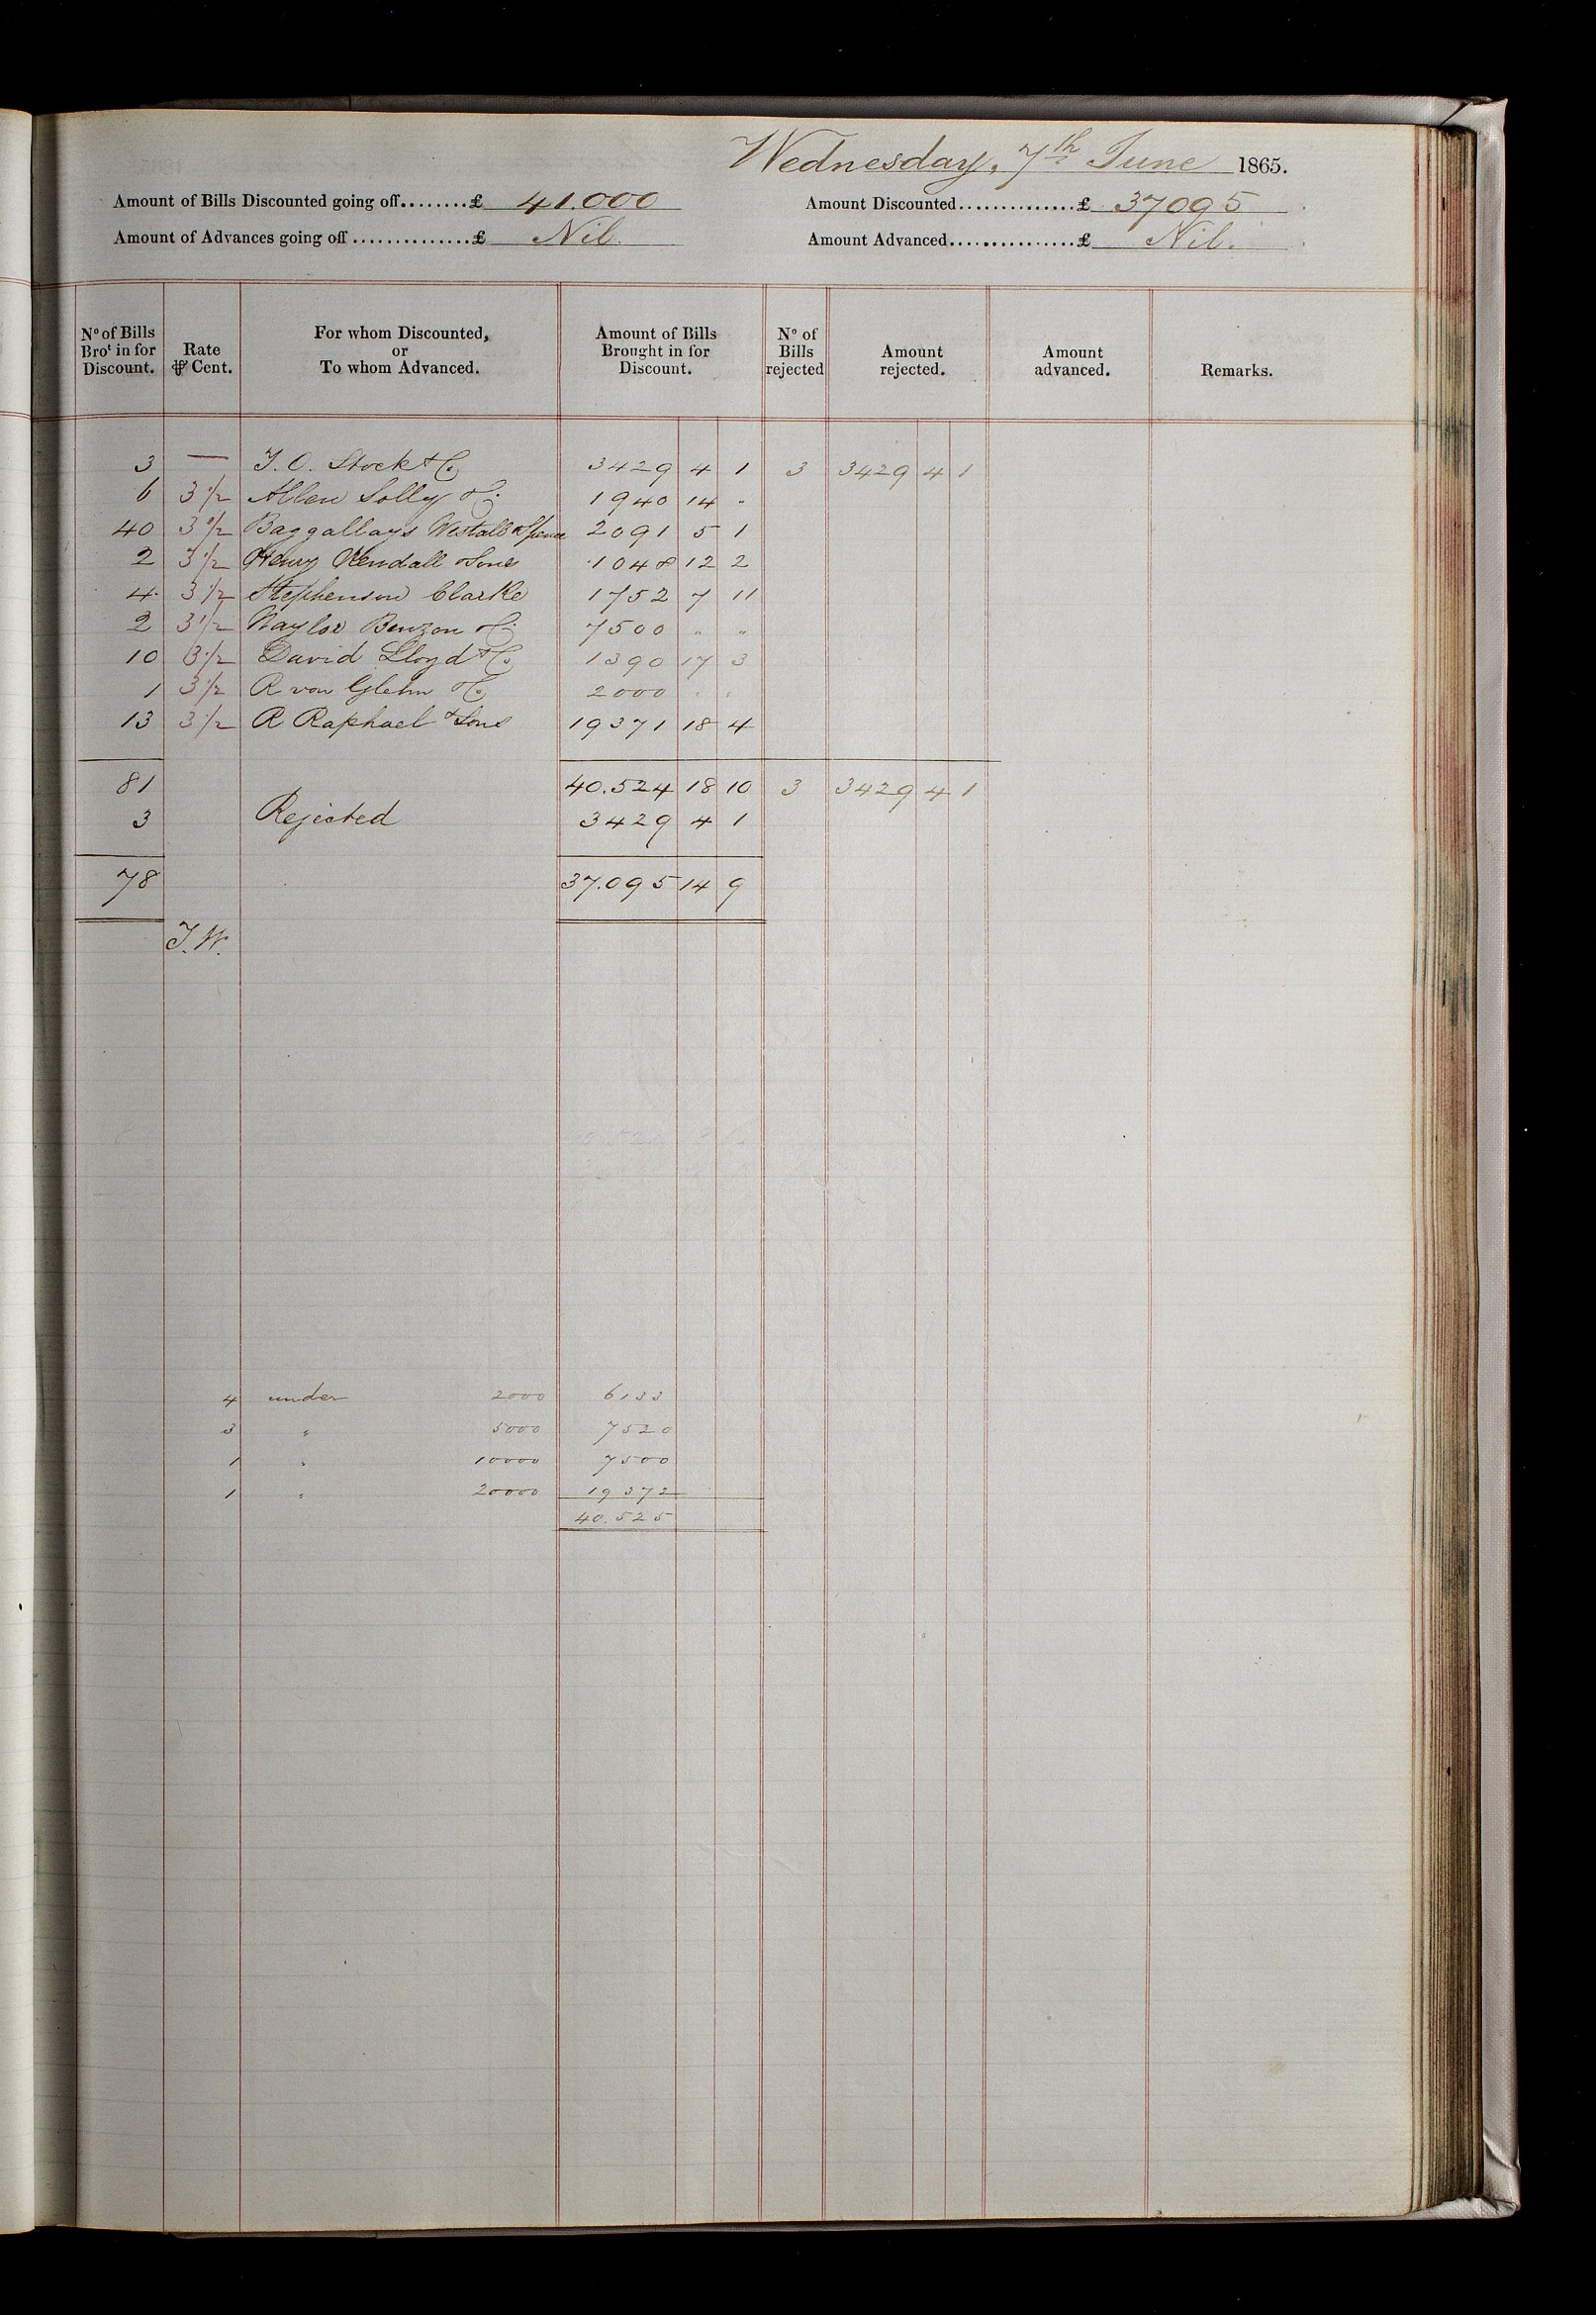 Wednesday, 7th June 1865.
Amount of Bills Discounted going off........£ 41.000 Amount Discounted..............£ 37095
Amount of Advances going off...............£ Nil. Amount Advanced...............£ Nil.
No of Bills Brot in for Discount. Rate ⅌ Cent. For whom Discounted, or To whom Advanced. Amount of Bills Brought in for Discount. No of Bills rejected Amount rejected. Amount advanced. Remarks.
3 — J. O. Stock & Co 3429 4 1 3 3429 4 1
6 3 1/2 Allen Solly & Co 1940 14 "
40 3 1/2 Baggallays Westall & Spence 2091 5 1
2 3 1/2 Henry Kendall & Sons 1048 12 2
4 3 1/2 Stephenson Clarke 1752 7 11
2 3 1/2 Naylor Benzon & Co 7500 " "
10 3 1/2 David Lloyd & Co 1390 17 3
1 3 1/2 R von Glehn & Co 2000 " "
13 3 1/2 R Raphael & Sons 19371 18 4
81 40.524 18 10 3 3429 4 1
3 Rejected 3429 4 1
78 37.095 14 9
J.W.
4 under 2000 6133
3 " 5000 7520
1 " 10000 7500
1 " 20000 19372
40.525